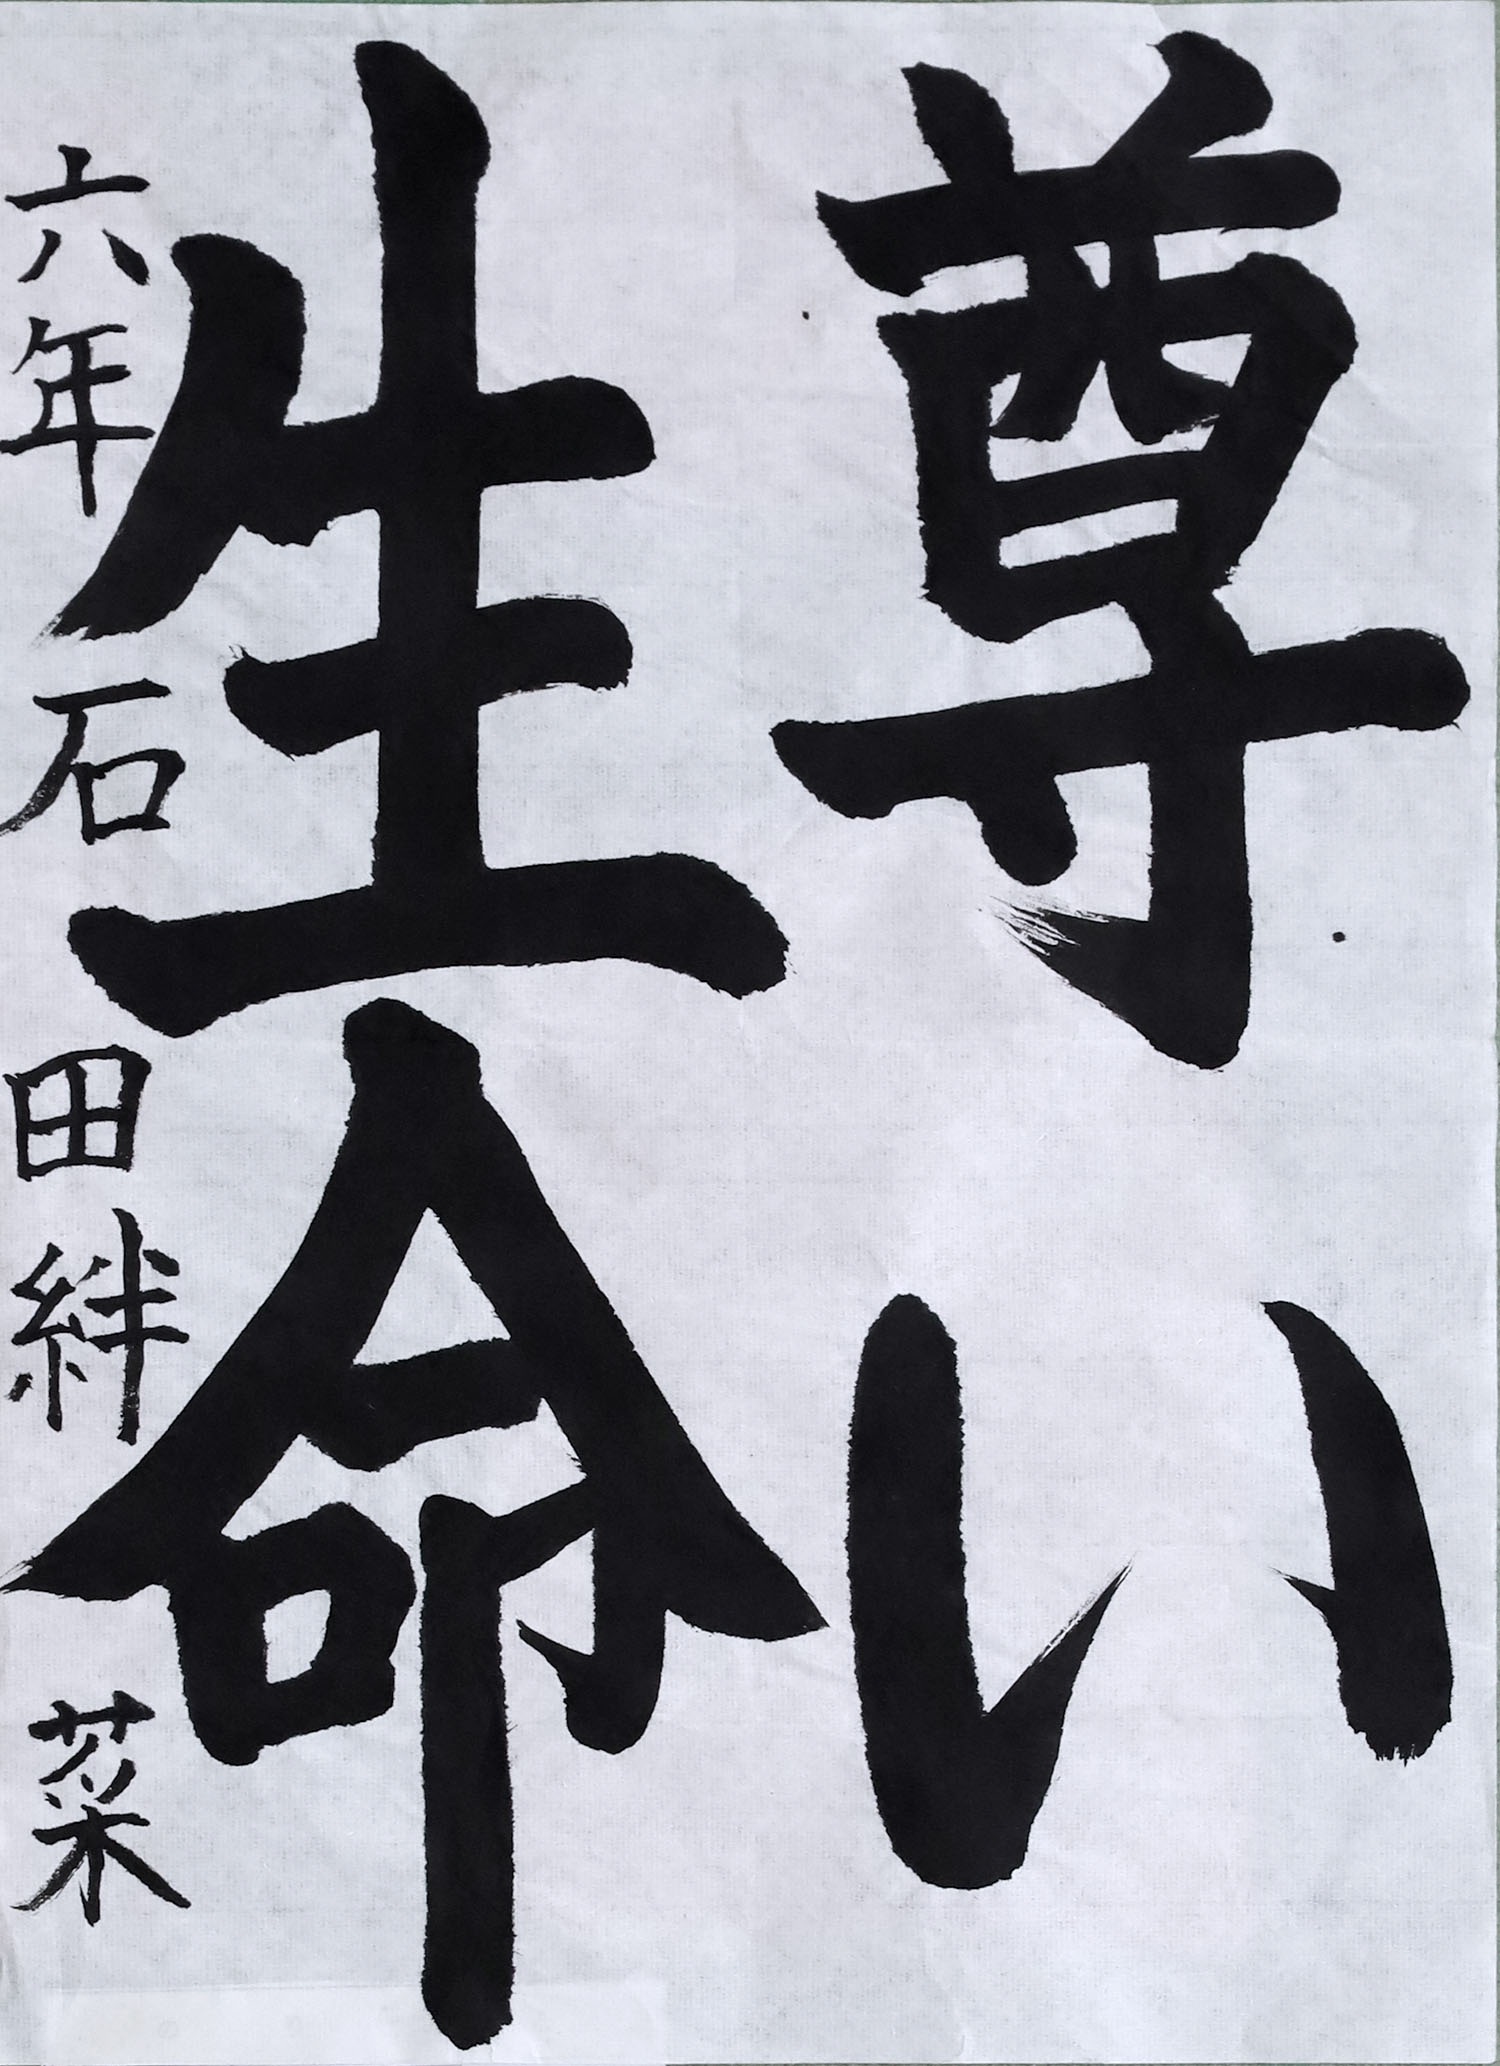 尊い
生命
六年 石田絆菜